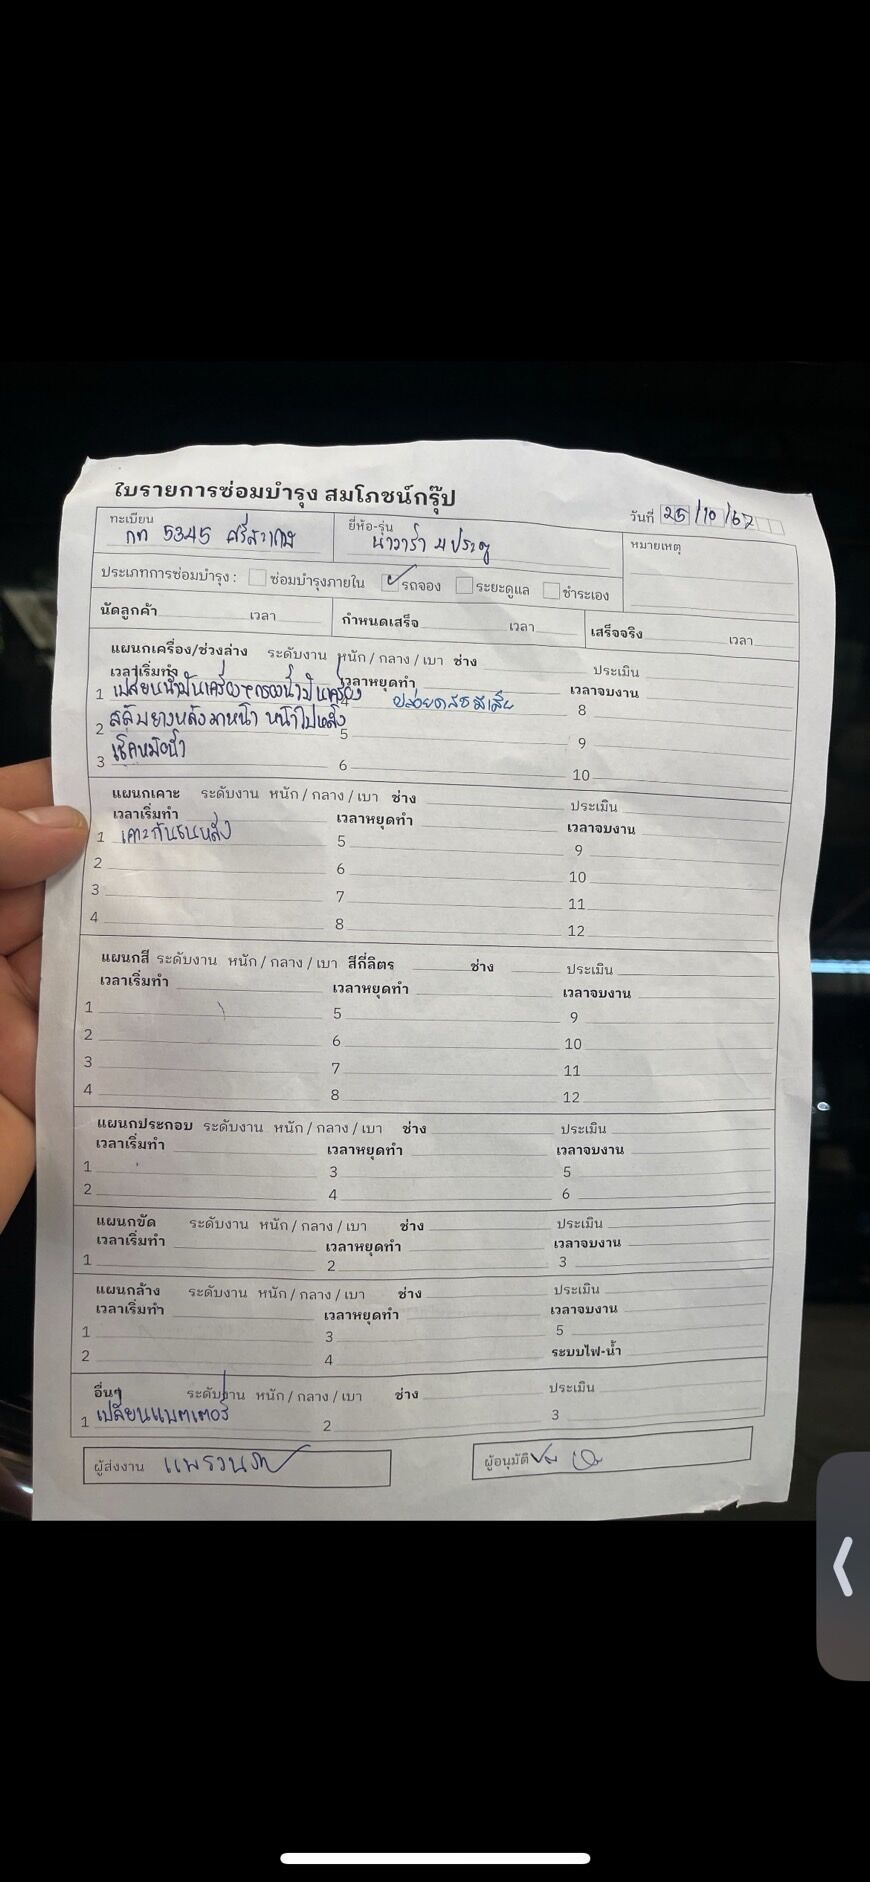 ใบรายการซ่อมบำรุง สมโภชน์กรุ๊ป
วันที่ 25/10/67
ทะเบียน กท 5345 ศรีสะเกษ ยี่ห้อ-รุ่น นาวาร่า 4 ประตู หมายเหตุ
ประเภทการซ่อมบำรุง : ซ่อมบำรุงภายใน ✓ รถจอง ระยะดูแล ชำระเอง
นัดลูกค้า เวลา กำหนดเสร็จ เวลา เสร็จจริง เวลา
แผนกเครื่อง/ช่วงล่าง ระดับงาน หนัก / กลาง / เบา ช่าง ประเมิน
เวลาเริ่มทำ เวลาหยุดทำ เวลาจบงาน
1 เปลี่ยนน้ำมันเครื่อง+กรองน้ำมันเครื่อง 4 8
2 สลับยางหลังมาหน้า หน้าไปหลัง 5 9
3 เช็คหม้อน้ำ 6 10
แผนกเคาะ ระดับงาน หนัก / กลาง / เบา ช่าง ประเมิน
เวลาเริ่มทำ เวลาหยุดทำ เวลาจบงาน
1 เคาะกันชนหลัง 5 9
2 6 10
3 7 11
4 8 12
แผนกสี ระดับงาน หนัก / กลาง / เบา สีกี่ลิตร ช่าง ประเมิน
เวลาเริ่มทำ เวลาหยุดทำ เวลาจบงาน
1 5 9
2 6 10
3 7 11
4 8 12
แผนกประกอบ ระดับงาน หนัก / กลาง / เบา ช่าง ประเมิน
เวลาเริ่มทำ เวลาหยุดทำ เวลาจบงาน
1 3 5
2 4 6
แผนกขัด ระดับงาน หนัก / กลาง / เบา ช่าง ประเมิน
เวลาเริ่มทำ เวลาหยุดทำ เวลาจบงาน
1 2 3
แผนกล้าง ระดับงาน หนัก / กลาง / เบา ช่าง ประเมิน
เวลาเริ่มทำ เวลาหยุดทำ เวลาจบงาน
1 3 5
2 4 ระบบไฟ-น้ำ
อื่นๆ ระดับงาน หนัก / กลาง / เบา ช่าง ประเมิน
1 เปลี่ยนแบตเตอรี่ 2 3
ผู้ส่งงาน แพรวนภา ผู้อนุมัติ